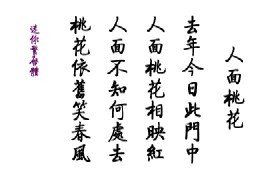 人面桃花
去年今日此門中
人面桃花相映紅
人面不知何處去
桃花依舊笑春風
迷你繁楷體